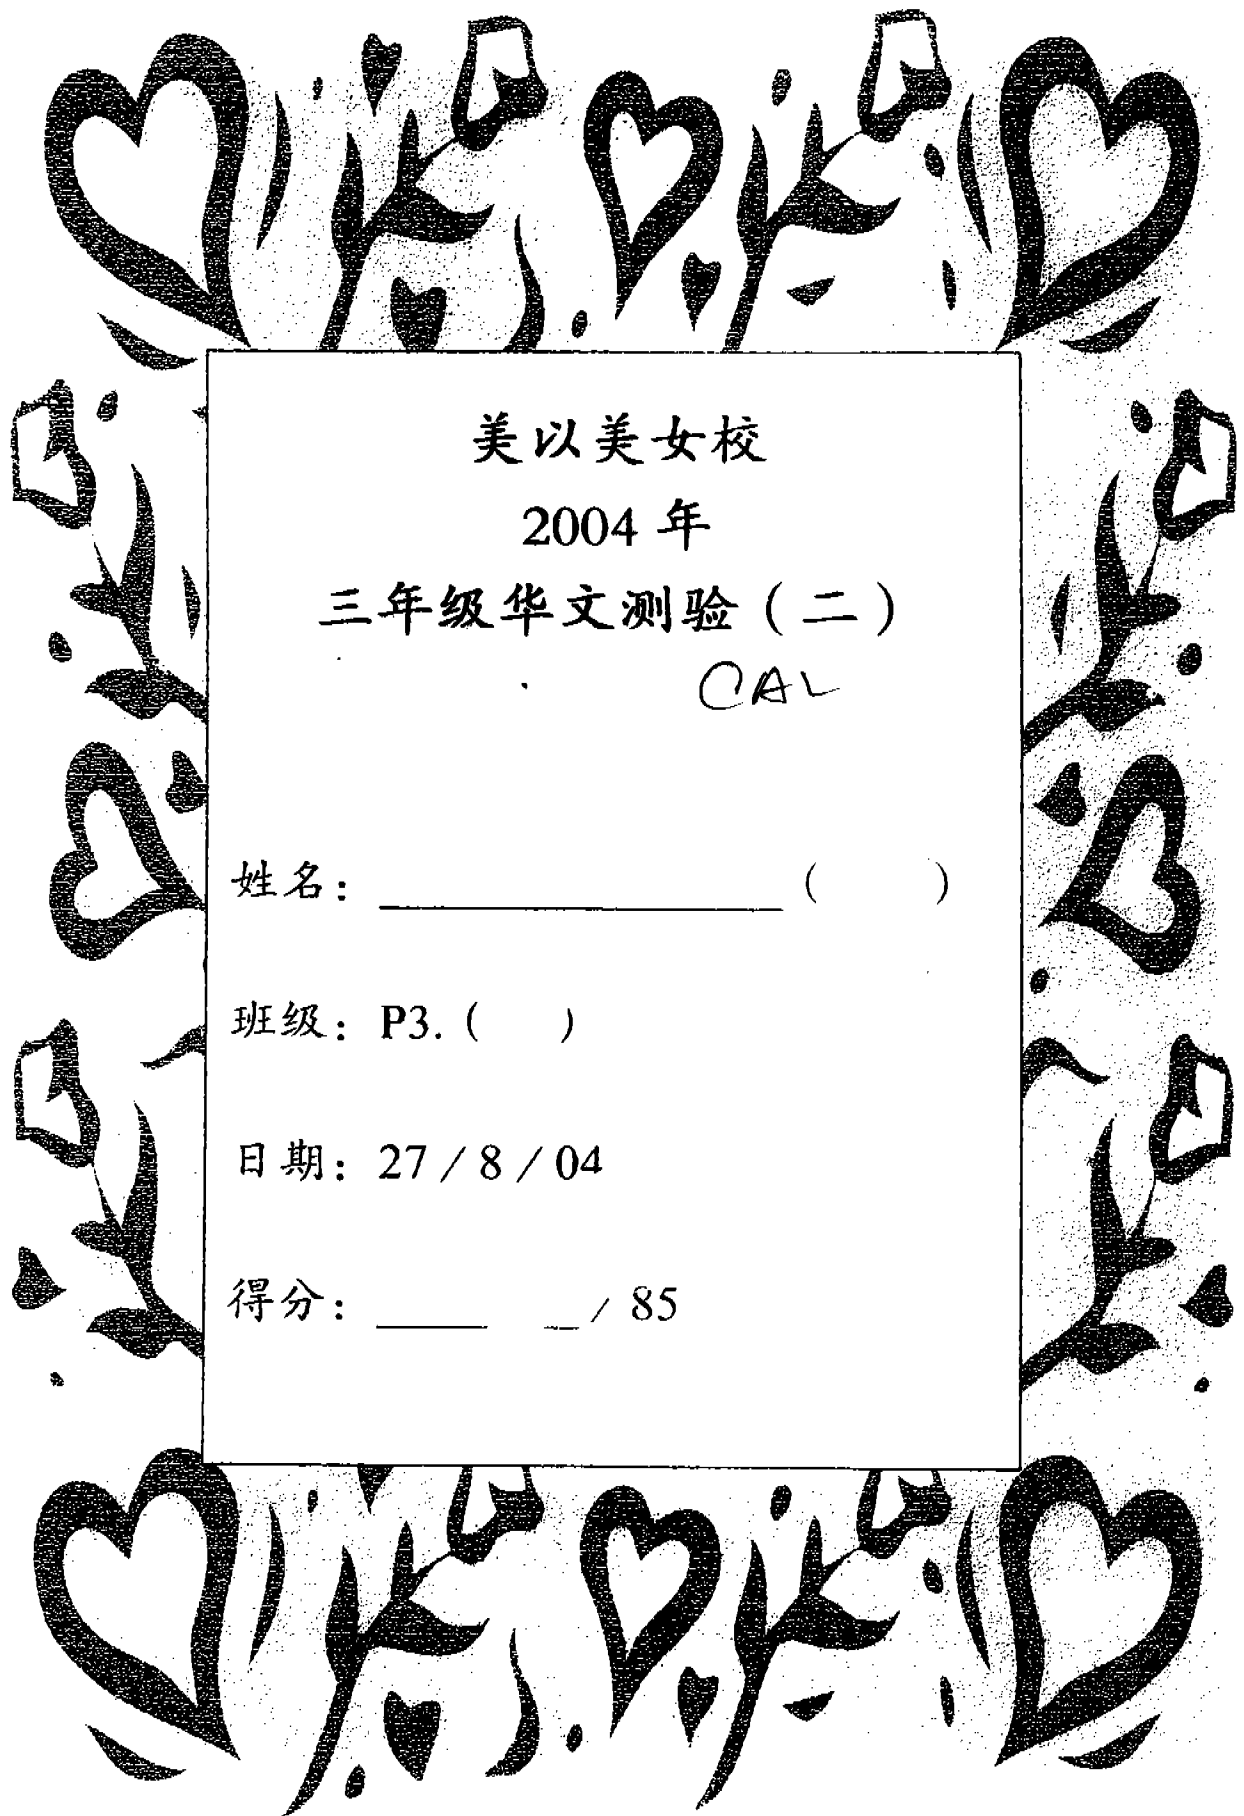 美以美女校
2004 年
三年级华文测验（二）
CAL
姓名：____________（　　）
班级：P3.（　　）
日期：27 / 8 / 04
得分：____ _ / 85